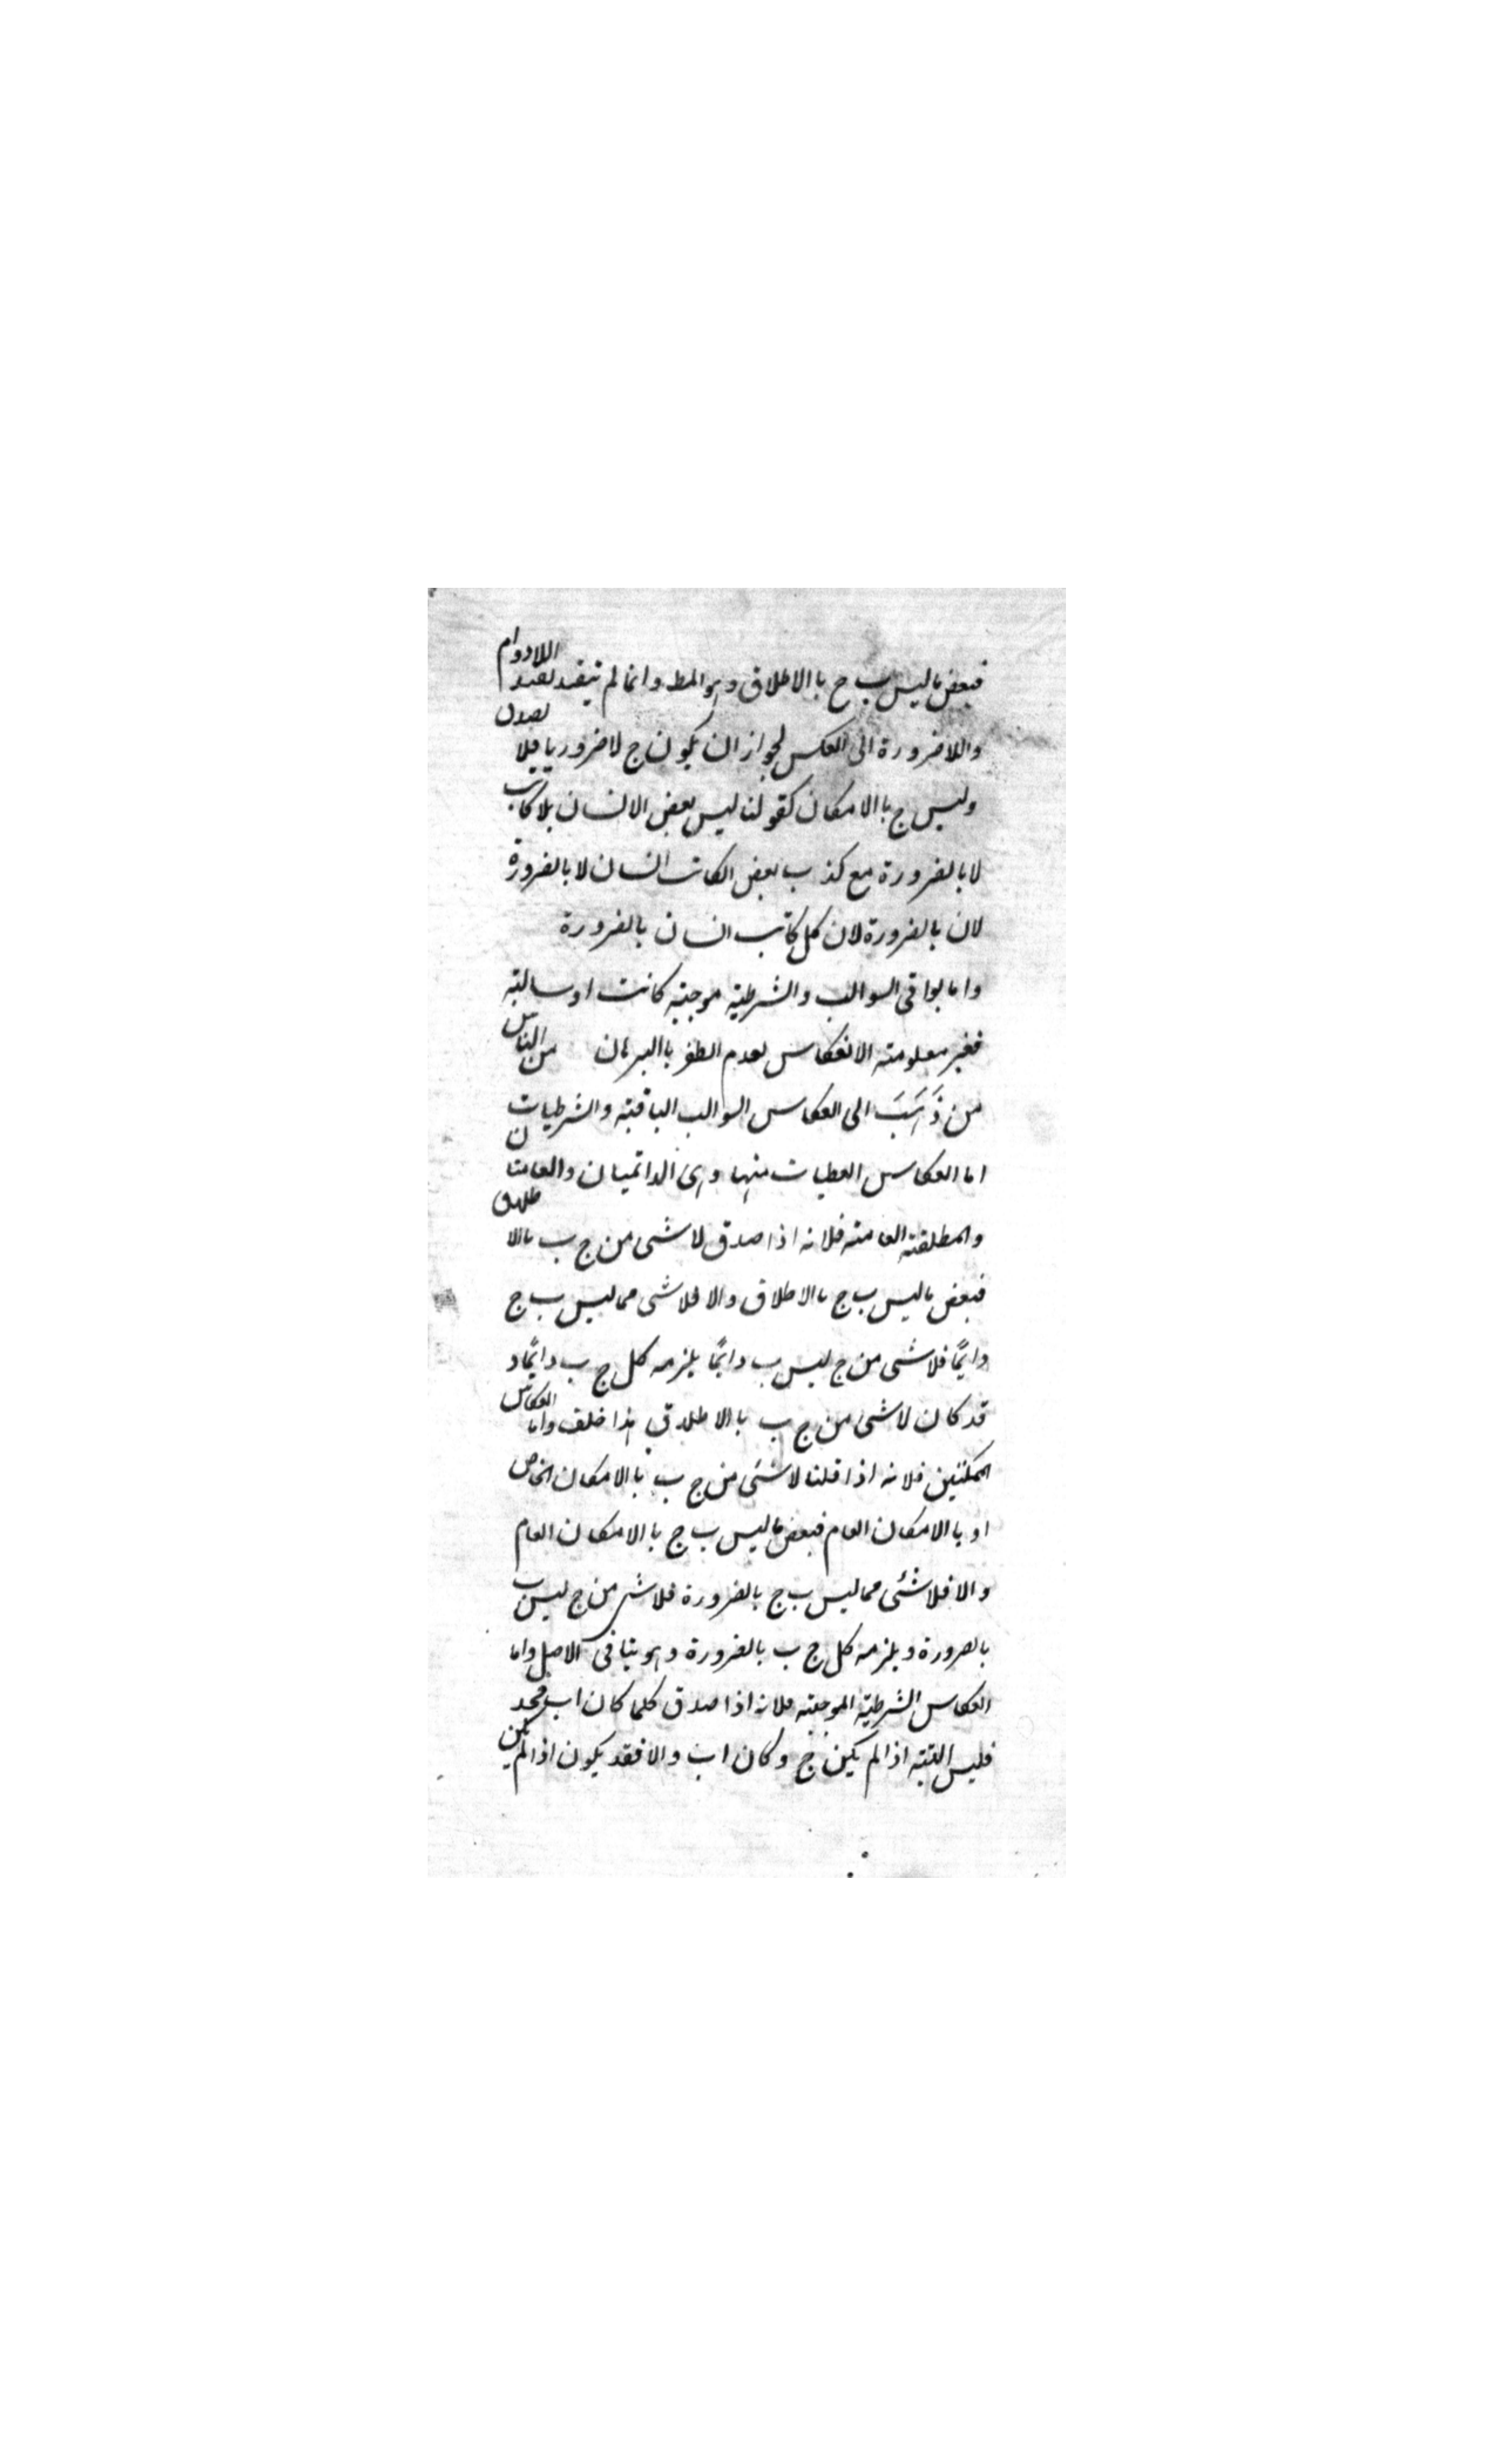 فبعض ماليس ب ج باالاطلاق وهو المط وانما لم يتقيد بقيد اللادوام
واللاضرورة الى العكس لجواز ان يكون ج لا ضروريا فلا يصدق
وليس ج باالامكان كقولنا ليس بعض الانسان بلا كاتب
لا بالضرورة مع كذب بعض الكاتب انسان لا بالضرورة
لان بالضرورة لان كل كاتب انسان بالضرورة
واما بواقى السوالب والشرطية موجبة كانت او سالبة
فغير معلومة الانعكاس لعدم الظفر باالبرهان من الناس
من ذَهَبَ الى انعكاس السوالب الباقية والشرطيات
اما انعكاس الفعليات منها وهى الدائميان والعامتان
والمطلقة العامة فلانه اذا صدق لا شى من ج ب باالاطلاق
فبعض ماليس ب ج باالاطلاق والا فلا شى مماليس ب ج
دائمًا فلا شى من ج ليس ب دائمًا يلزمه كل ج ب دائمًا و
قد كان لا شى من ج ب باالاطلاق هذا خلف واما انعكاس
الممكنتين فلانه اذا قلنا لا شى من ج ب باالامكان الخاص
او باالامكان العام فبعض ماليس ب ج باالامكان العام
والا فلا شئى مماليس ب ج بالضرورة فلا شى من ج ليس ب
بالضرورة ويلزمه كل ج ب بالضرورة وهو ينافى الاصل واما
انعكاس الشرطية الموجبة فلانه اذا صدق كلما كان اب فجد
فليس البتة اذا لم يكن ج وكان اب والا فقد يكون اذا لم يكن